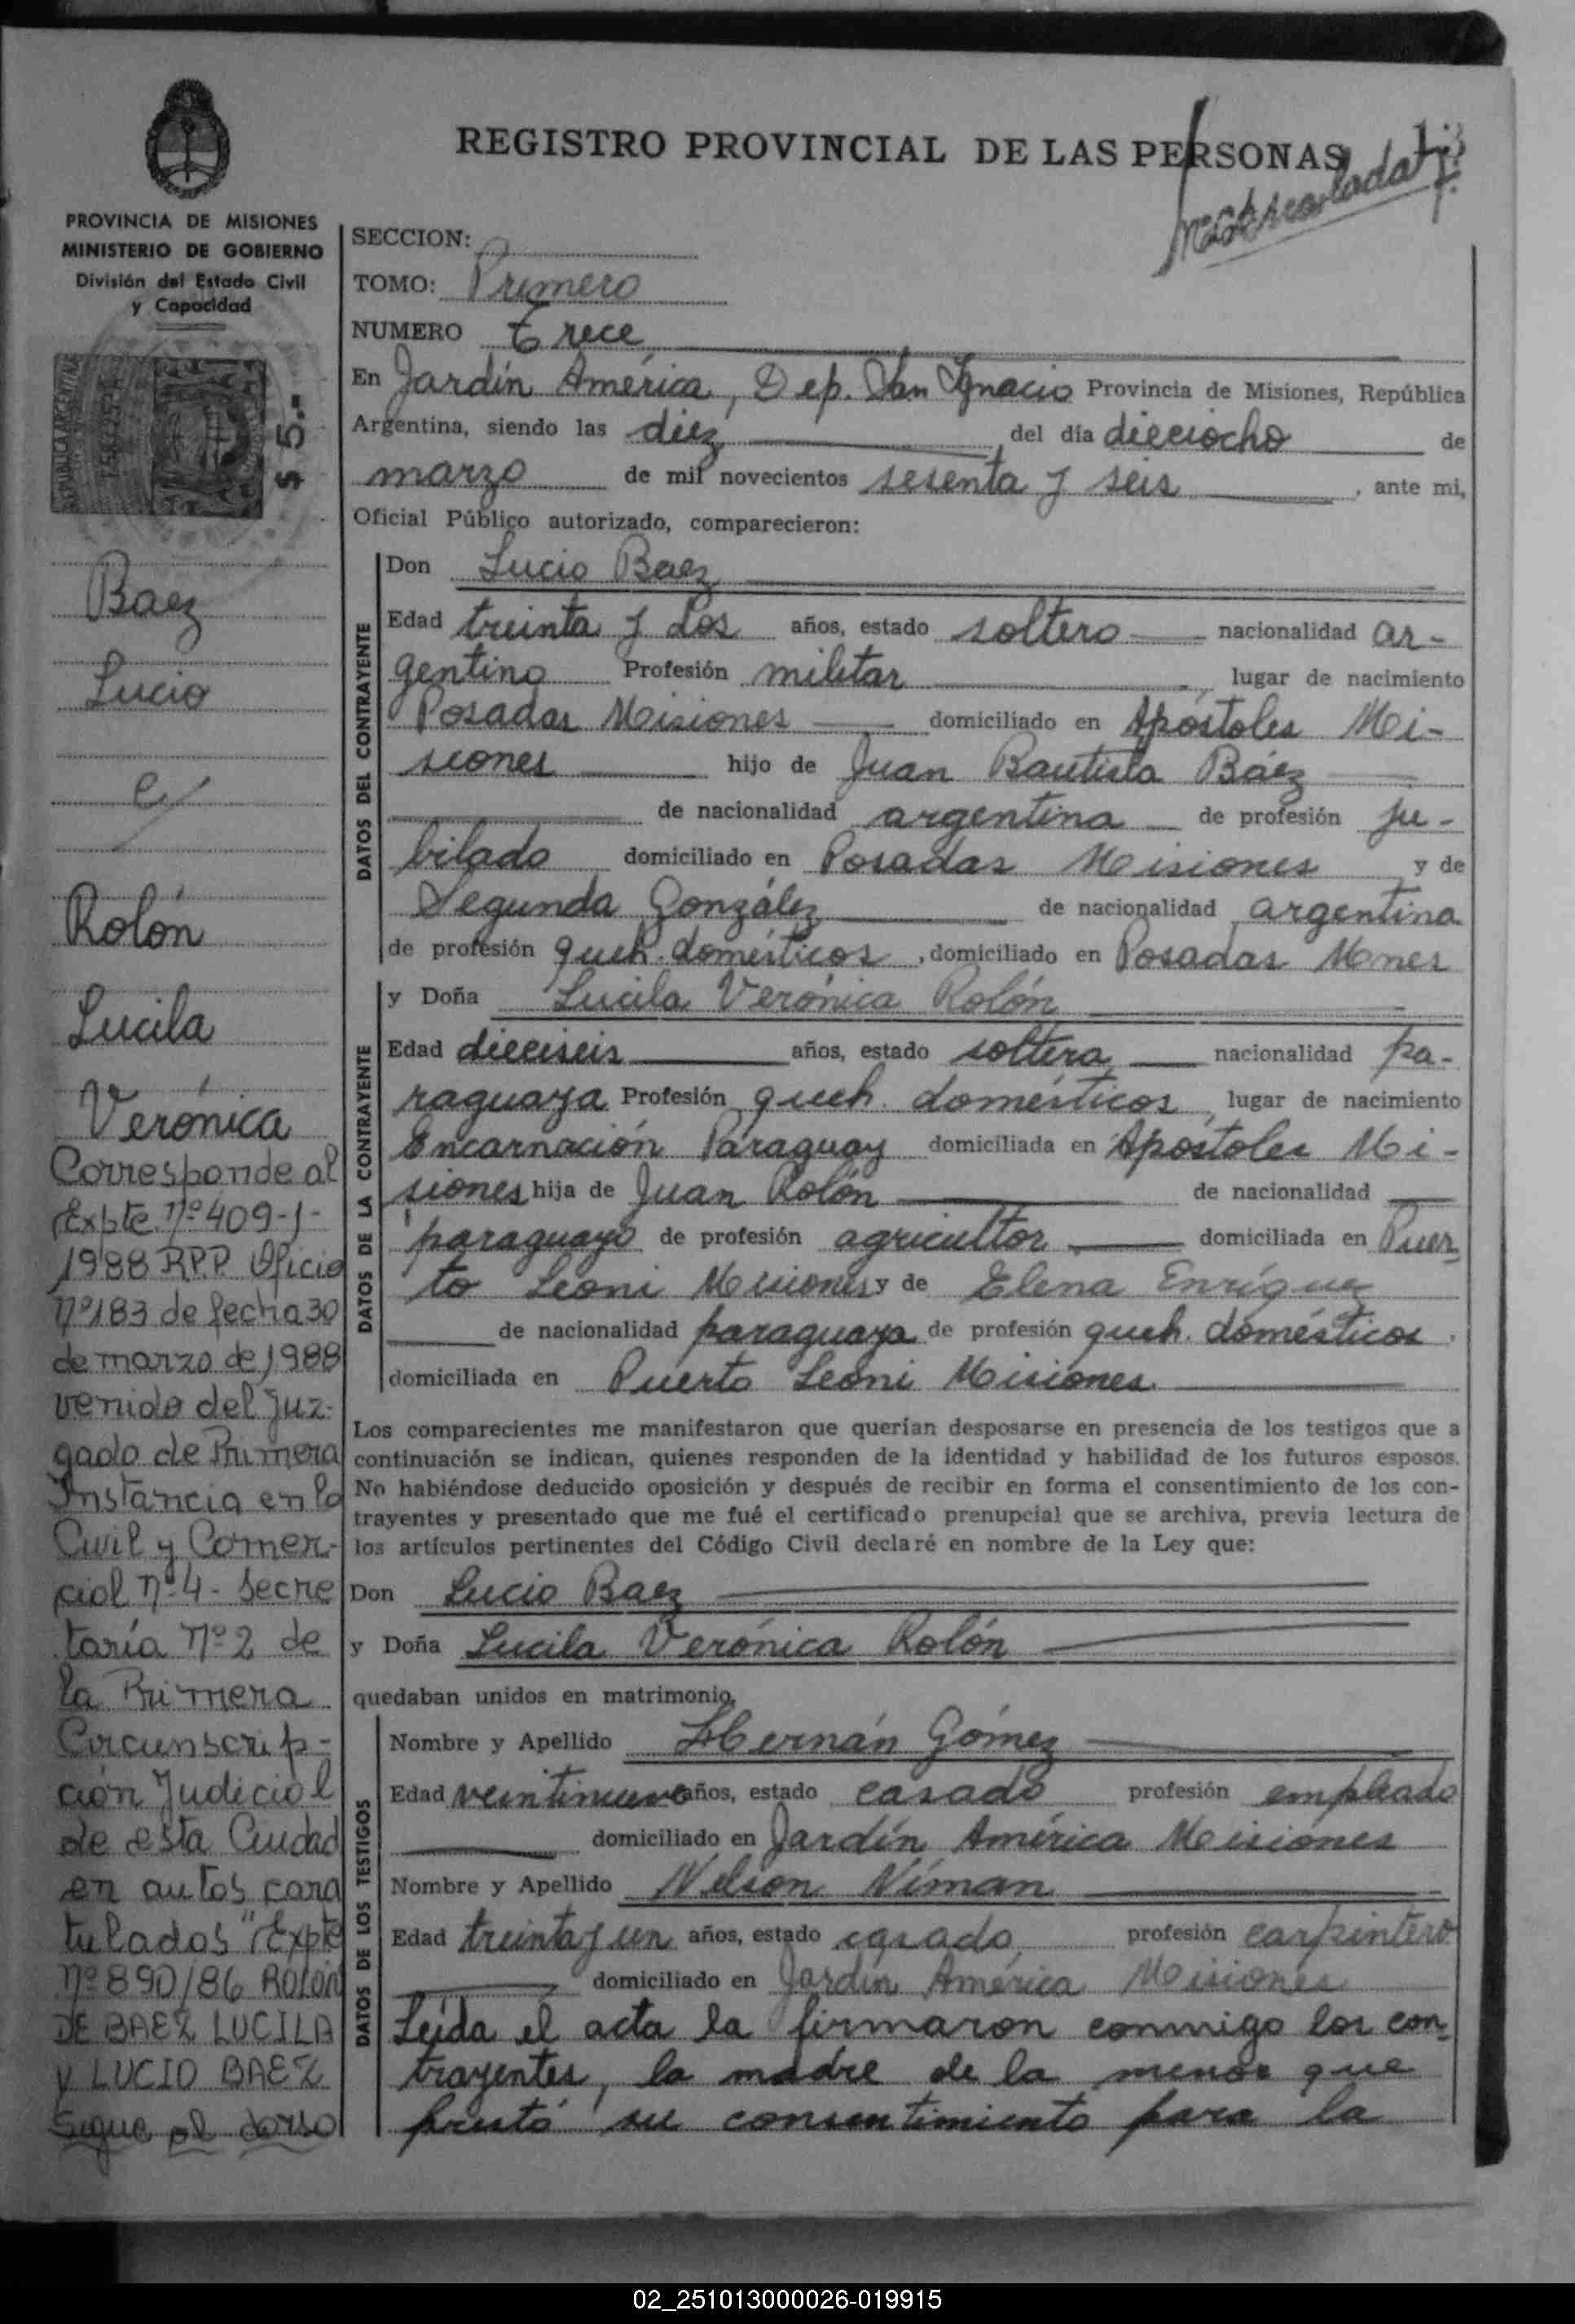 REGISTRO PROVINCIAL DE LAS PERSONAS
PROVINCIA DE MISIONES
MINISTERIO DE GOBIERNO
División del Estado Civil
y Capacidad
REPUBLICA ARGENTINA
$ 5.-
Baez
Lucio
c/
Rolón
Lucila
Verónica
Corresponde al
Expte. nº 409-J-
1988 R.P.P. Oficio
nº 183 de fecha 30
de marzo de 1988
venido del Juz-
gado de Primera
Instancia en lo
Civil y Comer-
cial nº 4 - Secre
taría nº 2 de
la Primera
Circunscrip-
ción Judicial
de esta Ciudad
en autos cara
tulados "Expte
nº 890/86 ROLON
DE BAEZ LUCILA
y LUCIO BAEZ
Sigue al dorso
SECCION:
TOMO: Primero
NUMERO Trece
En Jardín América, Dep. San Ignacio Provincia de Misiones, República
Argentina, siendo las diez del día dieciocho de
marzo de mil novecientos sesenta y seis, ante mi,
Oficial Público autorizado, comparecieron:
DATOS DEL CONTRAYENTE
Don Lucio Baez
Edad treinta y dos años, estado soltero nacionalidad ar-
gentino Profesión militar, lugar de nacimiento
Posadas Misiones domiciliado en Apóstoles Mi-
siones hijo de Juan Bautista Báez
de nacionalidad argentina de profesión ju-
bilado domiciliado en Posadas Misiones y de
Segunda González de nacionalidad argentina
de profesión queh. domésticos, domiciliado en Posadas Mones
DATOS DE LA CONTRAYENTE
y Doña Lucila Verónica Rolón
Edad dieciseis años, estado soltera nacionalidad pa-
raguaya Profesión queh. domésticos, lugar de nacimiento
Encarnación Paraguay domiciliada en Apóstoles Mi-
siones hija de Juan Rolón de nacionalidad
paraguayo de profesión agricultor domiciliada en Puer-
to Leoni Misiones y de Elena Enríquez
de nacionalidad paraguaya de profesión queh. domésticos.
domiciliada en Puerto Leoni Misiones.
Los comparecientes me manifestaron que querían desposarse en presencia de los testigos que a
continuación se indican, quienes responden de la identidad y habilidad de los futuros esposos.
No habiéndose deducido oposición y después de recibir en forma el consentimiento de los con-
trayentes y presentado que me fué el certificado prenupcial que se archiva, previa lectura de
los artículos pertinentes del Código Civil declaré en nombre de la Ley que:
Don Lucio Baez
y Doña Lucila Verónica Rolón
quedaban unidos en matrimonio.
DATOS DE LOS TESTIGOS
Nombre y Apellido Hernán Gómez
Edad veintinueve años, estado casado profesión empleado
domiciliado en Jardín América Misiones
Nombre y Apellido Nelson Niman
Edad treinta y un años, estado casado, profesión carpintero
domiciliado en Jardín América Misiones
Leída el acta la firmaron conmigo los con-
trayentes, la madre de la menor que
prestó su consentimiento para la
02_251013000026-019915